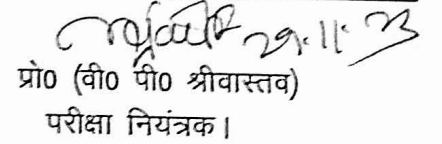 29.11.23
प्रो0 (वी0 पी0 श्रीवास्तव)
परीक्षा नियंत्रक।